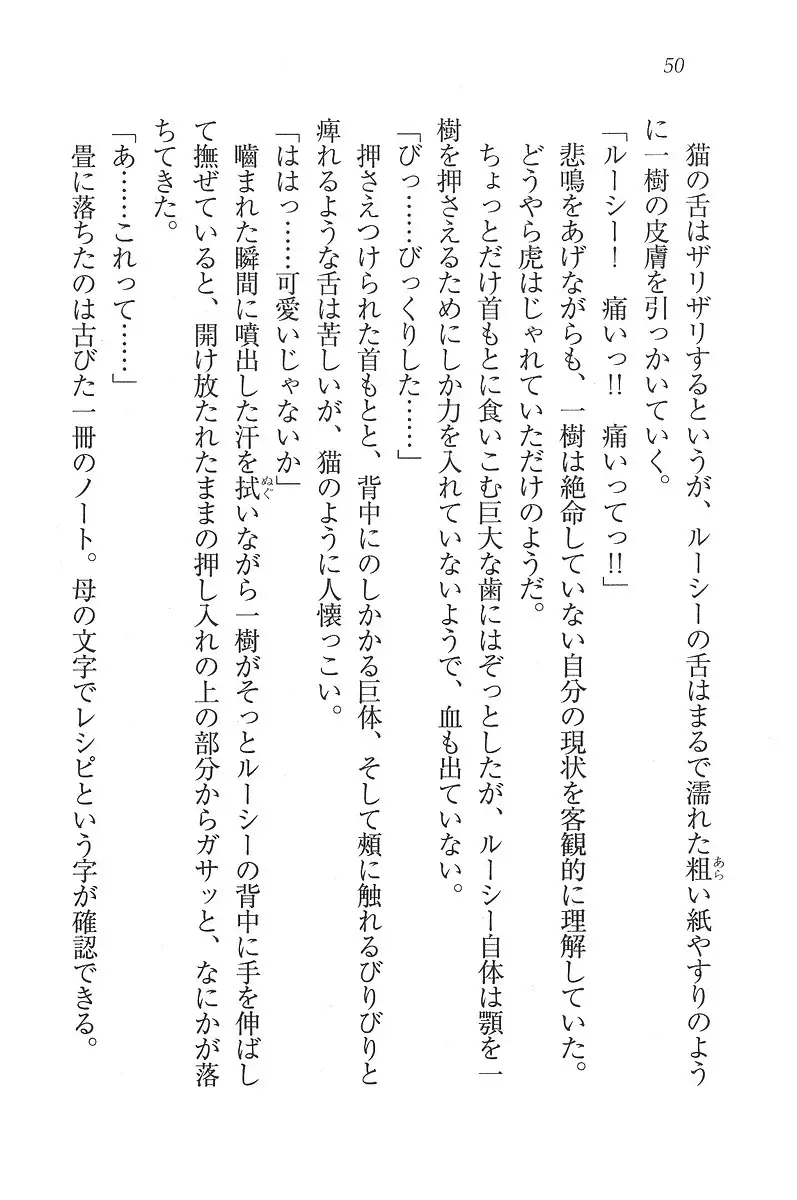 50
猫の舌はザリザリするというが、ルーシーの舌はまるで濡れた粗い紙やすりのよう
に一樹の皮膚を引っかいていく。
「ルーシー！　痛いっ!!　痛いってっ!!」
悲鳴をあげながらも、一樹は絶命していない自分の現状を客観的に理解していた。
どうやら虎はじゃれていただけのようだ。
ちょっとだけ首もとに食いこむ巨大な歯にはぞっとしたが、ルーシー自体は顎を一
樹を押さえるためにしか力を入れていないようで、血も出ていない。
「びっ……びっくりした……」
押さえつけられた首もとと、背中にのしかかる巨体、そして頰に触れるびりびりと
痺れるような舌は苦しいが、猫のように人懐っこい。
「ははっ……可愛いじゃないか」
嚙まれた瞬間に噴出した汗を拭いながら一樹がそっとルーシーの背中に手を伸ばし
て撫ぜていると、開け放たれたままの押し入れの上の部分からガサッと、なにかが落
ちてきた。
「あ……これって……」
畳に落ちたのは古びた一冊のノート。母の文字でレシピという字が確認できる。
あら
ぬぐ